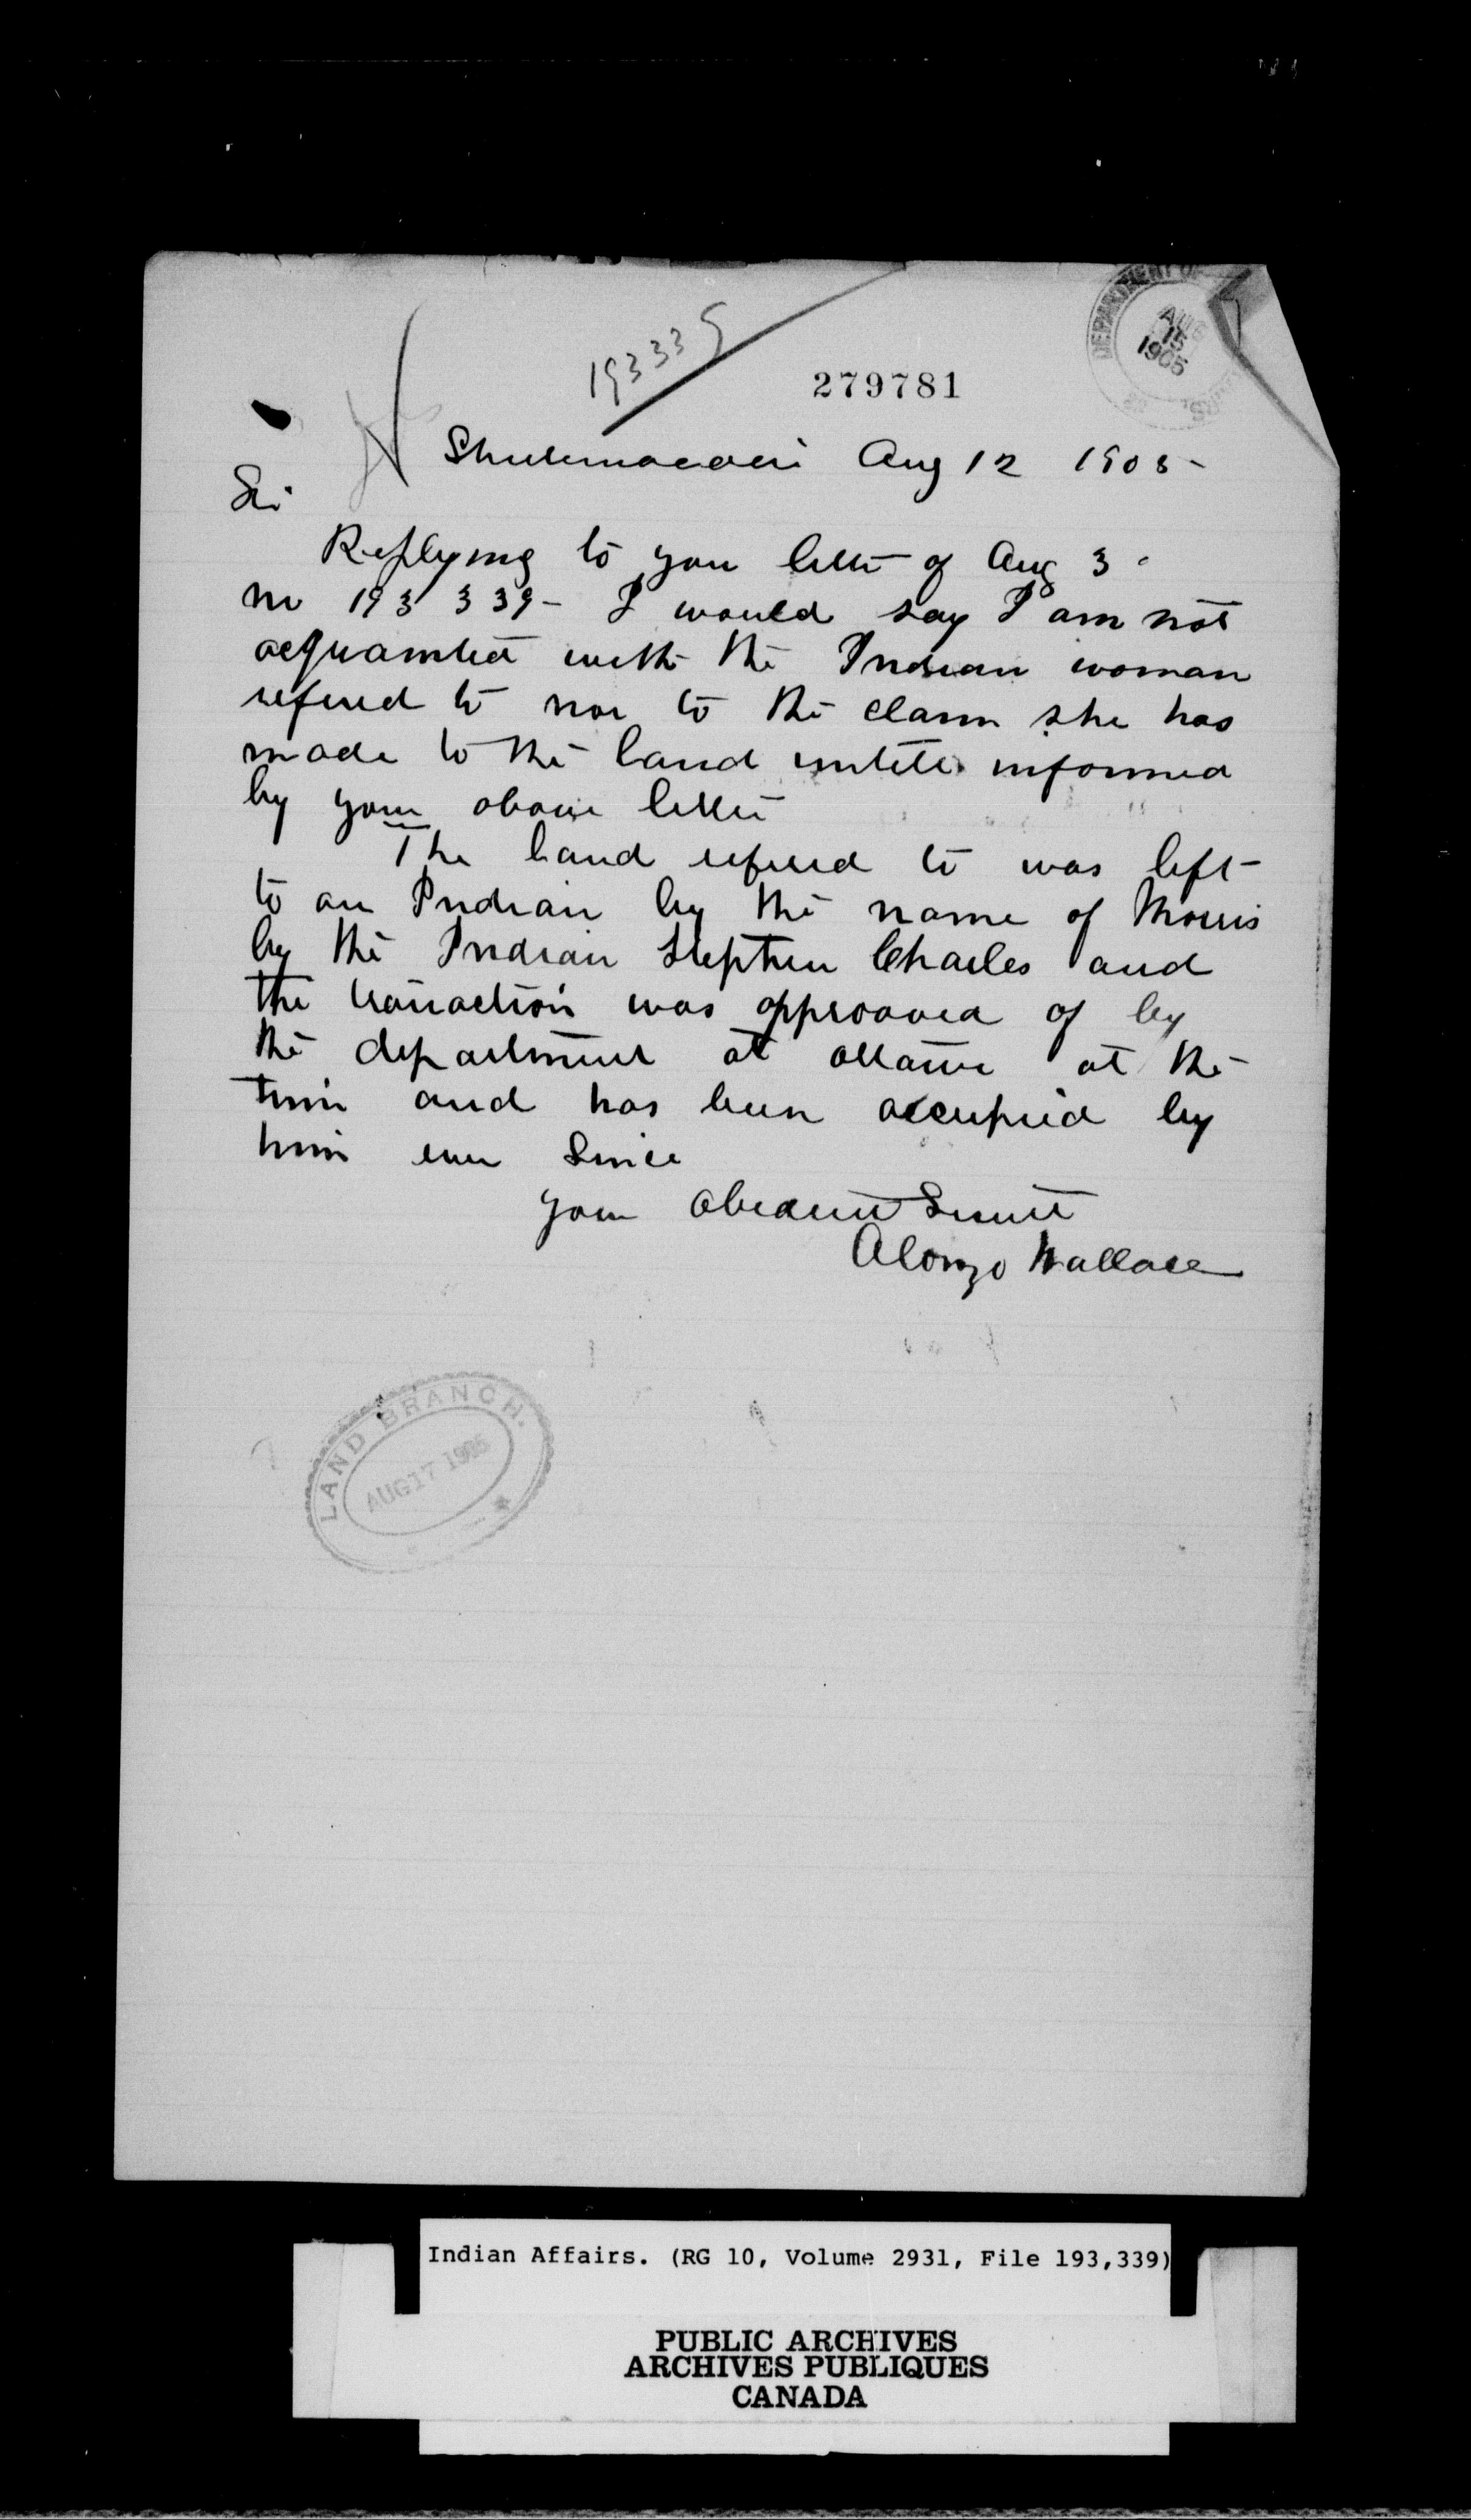 DEPARTMENT OF
AUG
15
1905
193339
279781
Shubenacadie Aug 12 1905
Sir
Replying to your letter of Aug 3
no 193 339 - I would say I am not
acquainted with the Indian woman
refered to nor to the claim she has
made to the land untill informed
by your above letter
The land refered to was left
to an Indian by the name of Morris
by the Indian Stephen Charles and
the transaction was approoved of by
the department at ottawa at the
time and has been occupied by
him ever Since
your obedient Servant
Alonzo Wallace
LAND BRANCH.
AUG 17 1905
Indian Affairs. (RG 10, Volume 2931, File 193,339)
PUBLIC ARCHIVES
ARCHIVES PUBLIQUES
CANADA